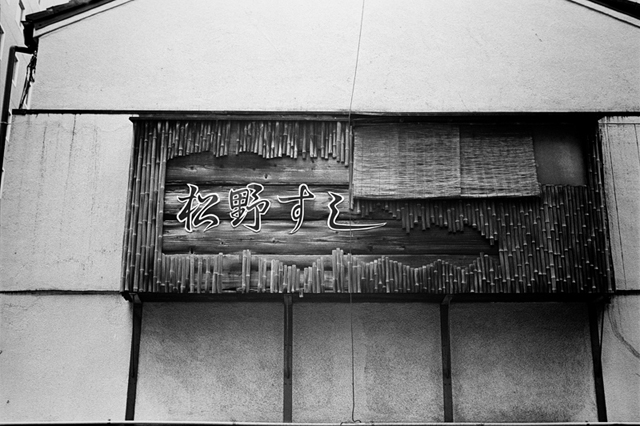 松野すし